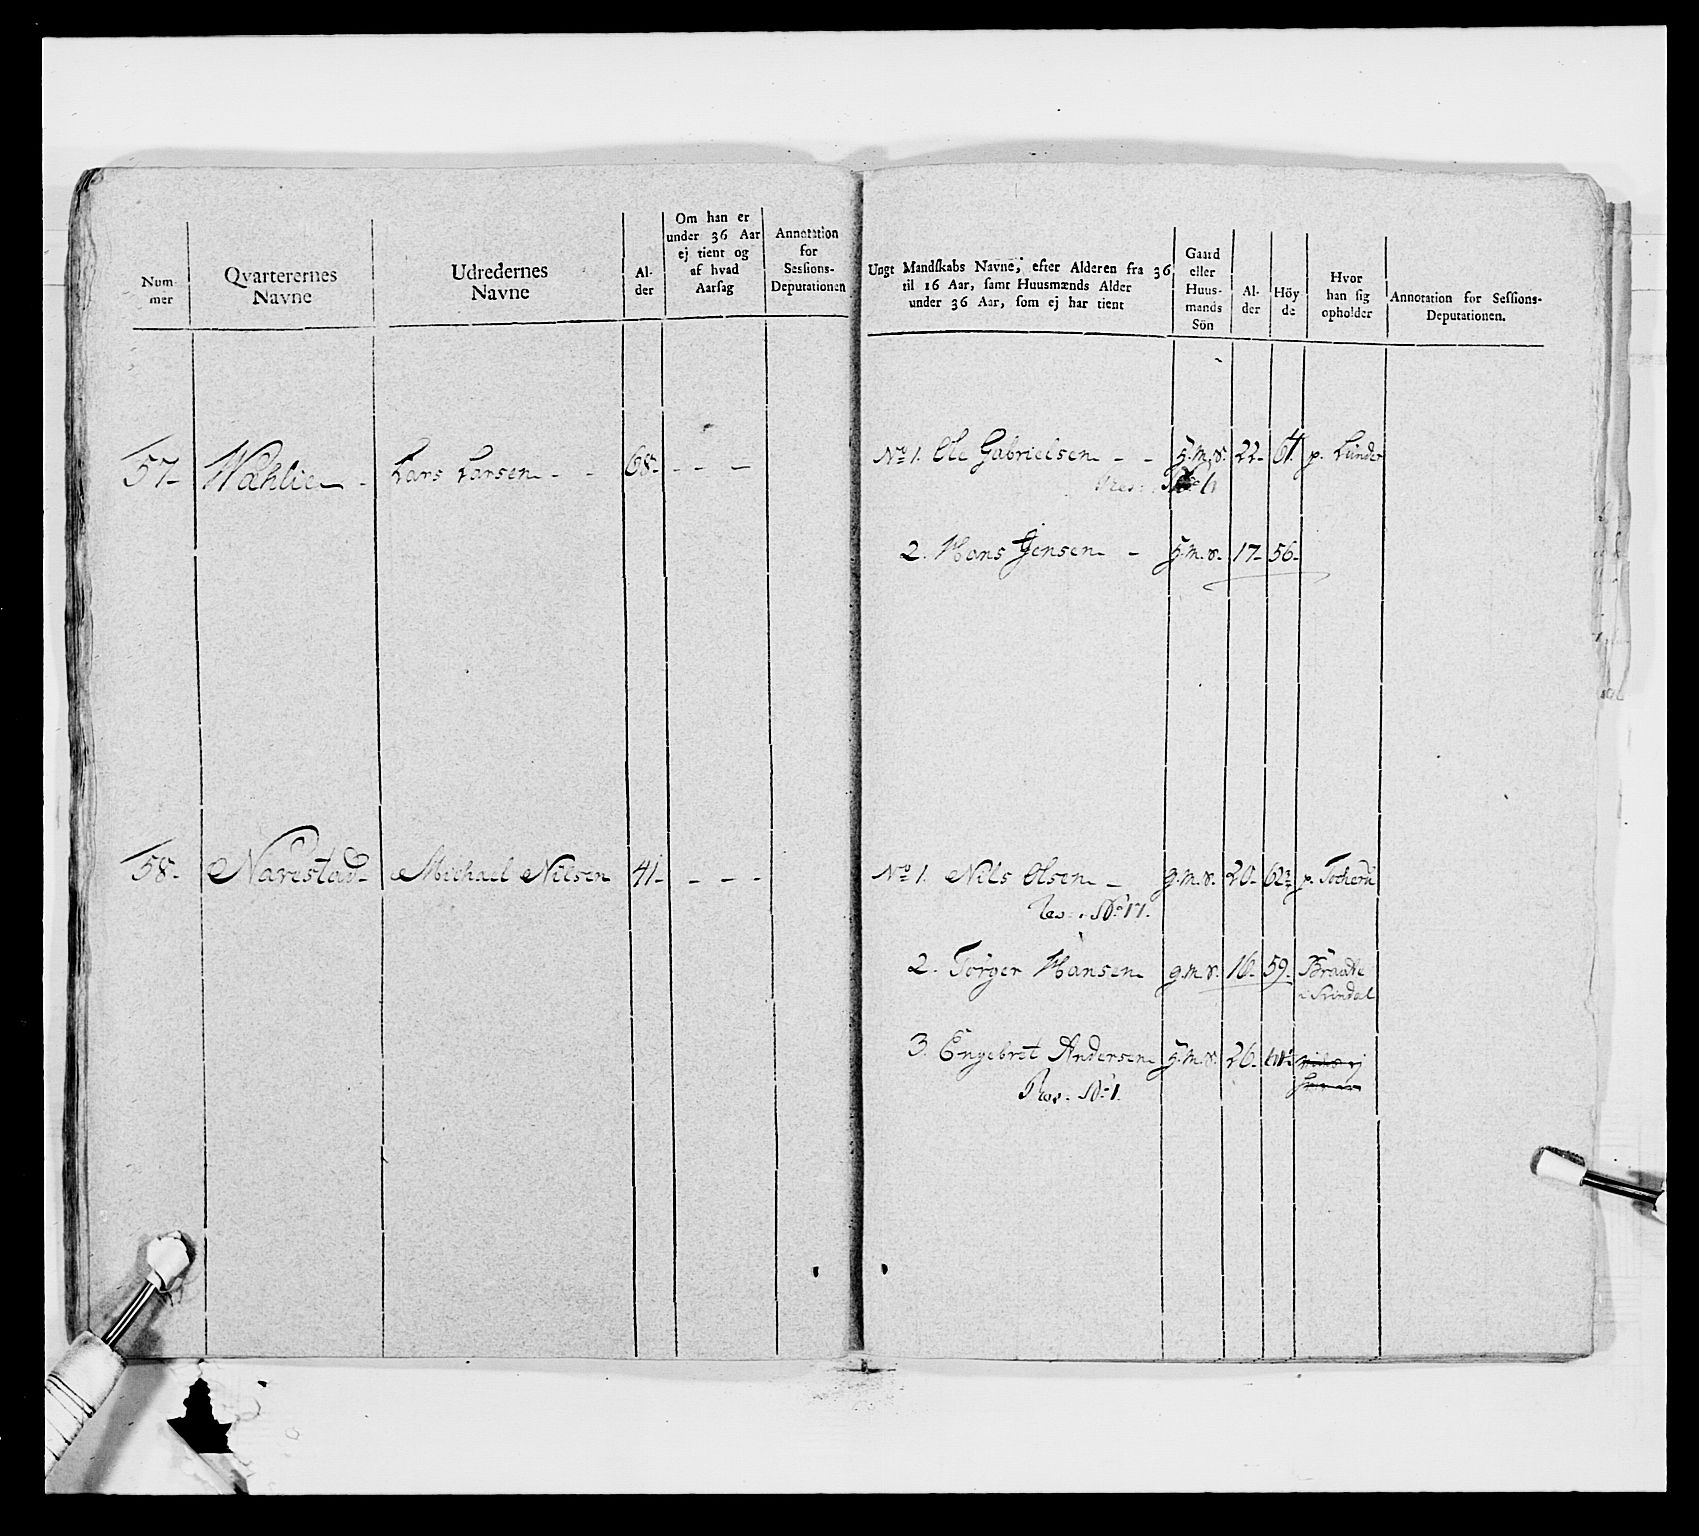 Num-
mer
Qvarterernes
Navne
Udredernes
Navne
Al-
der
Om han er
under 36 Aar
ej tient og
af hvad
Aarsag
Annotation
for
Sessions-
Deputationen
Ungt Mandskabs Navne, efter Alderen fra 36
til 16 Aar, samt Huusmænds Alder
under 36 Aar, som ej har tient
Gaard
eller
Huus-
mands
Sön
Al-
der
Höy
de
Hvor
han sig
opholder
Annotation for Sessions-
Deputationen.
57- Wæhlie - Lars Larsen - - 68- - - -
No 1. Ole Gabrielsen - - h.m.s. 22- 61. p. Lunder
2. Hans Jensen - h.m.s. 17- 56-
58- Narestad- Michael Nilsen 41- - - -
No 1. Nils Olsen - g.m.s. 20- 62 p.
Res. No 17.
2. Törger Hansen g.m.s. 16- 59- Braate
i Svindal
3. Engebret Andersen h.m.s. 26-
Res. No 1.